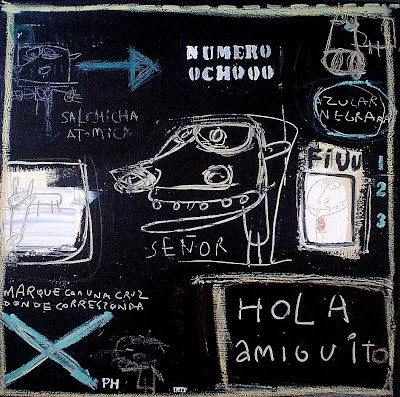 NUMERO
OCHOOO
SALCHICHA
ATOMICA
AZUCAR
NEGRA
FIUU
1
2
3
SEÑOR
MARQUE CON UNA CRUZ
DONDE CORRESPONDA
HOLA
amiguito
PH